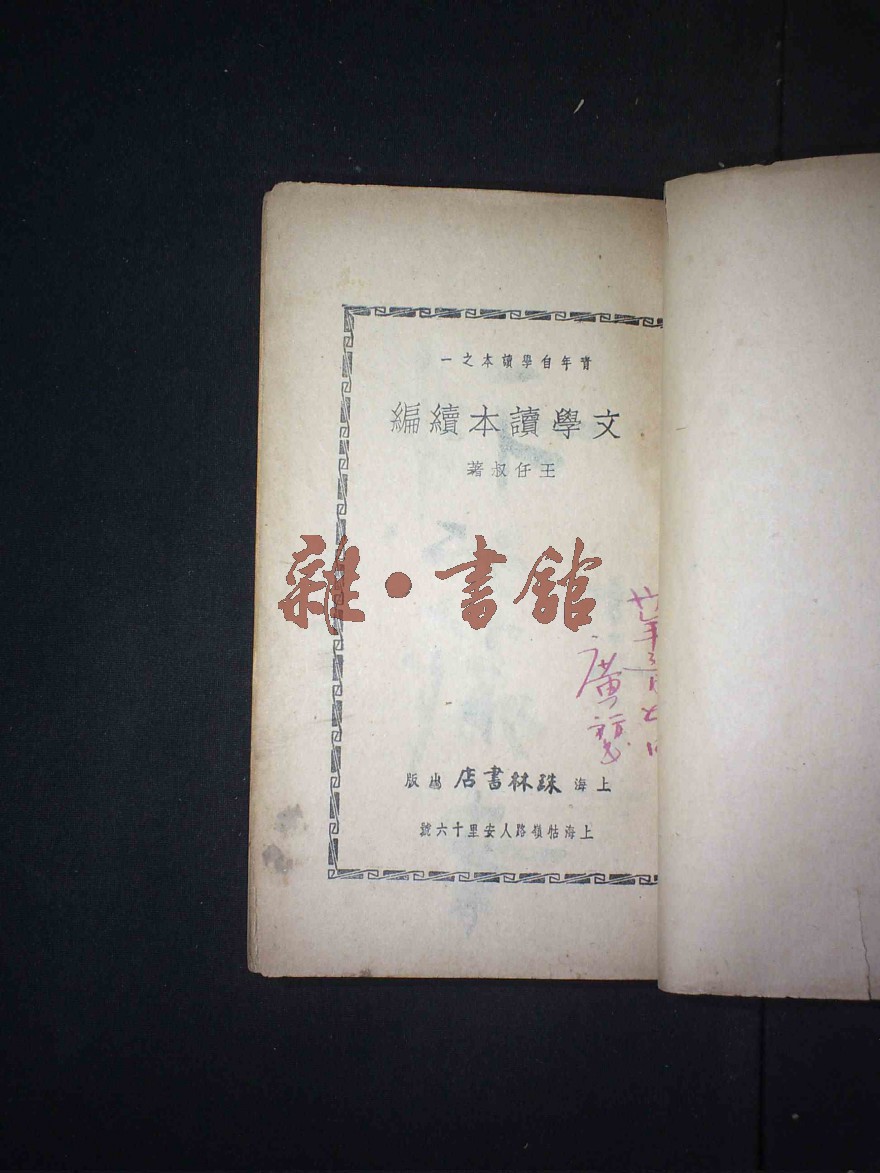 青年自學讀本之一
文學讀本續編
王任叔著
雜·書舘
上海珠林書店出版
上海牯嶺路人安里十六號